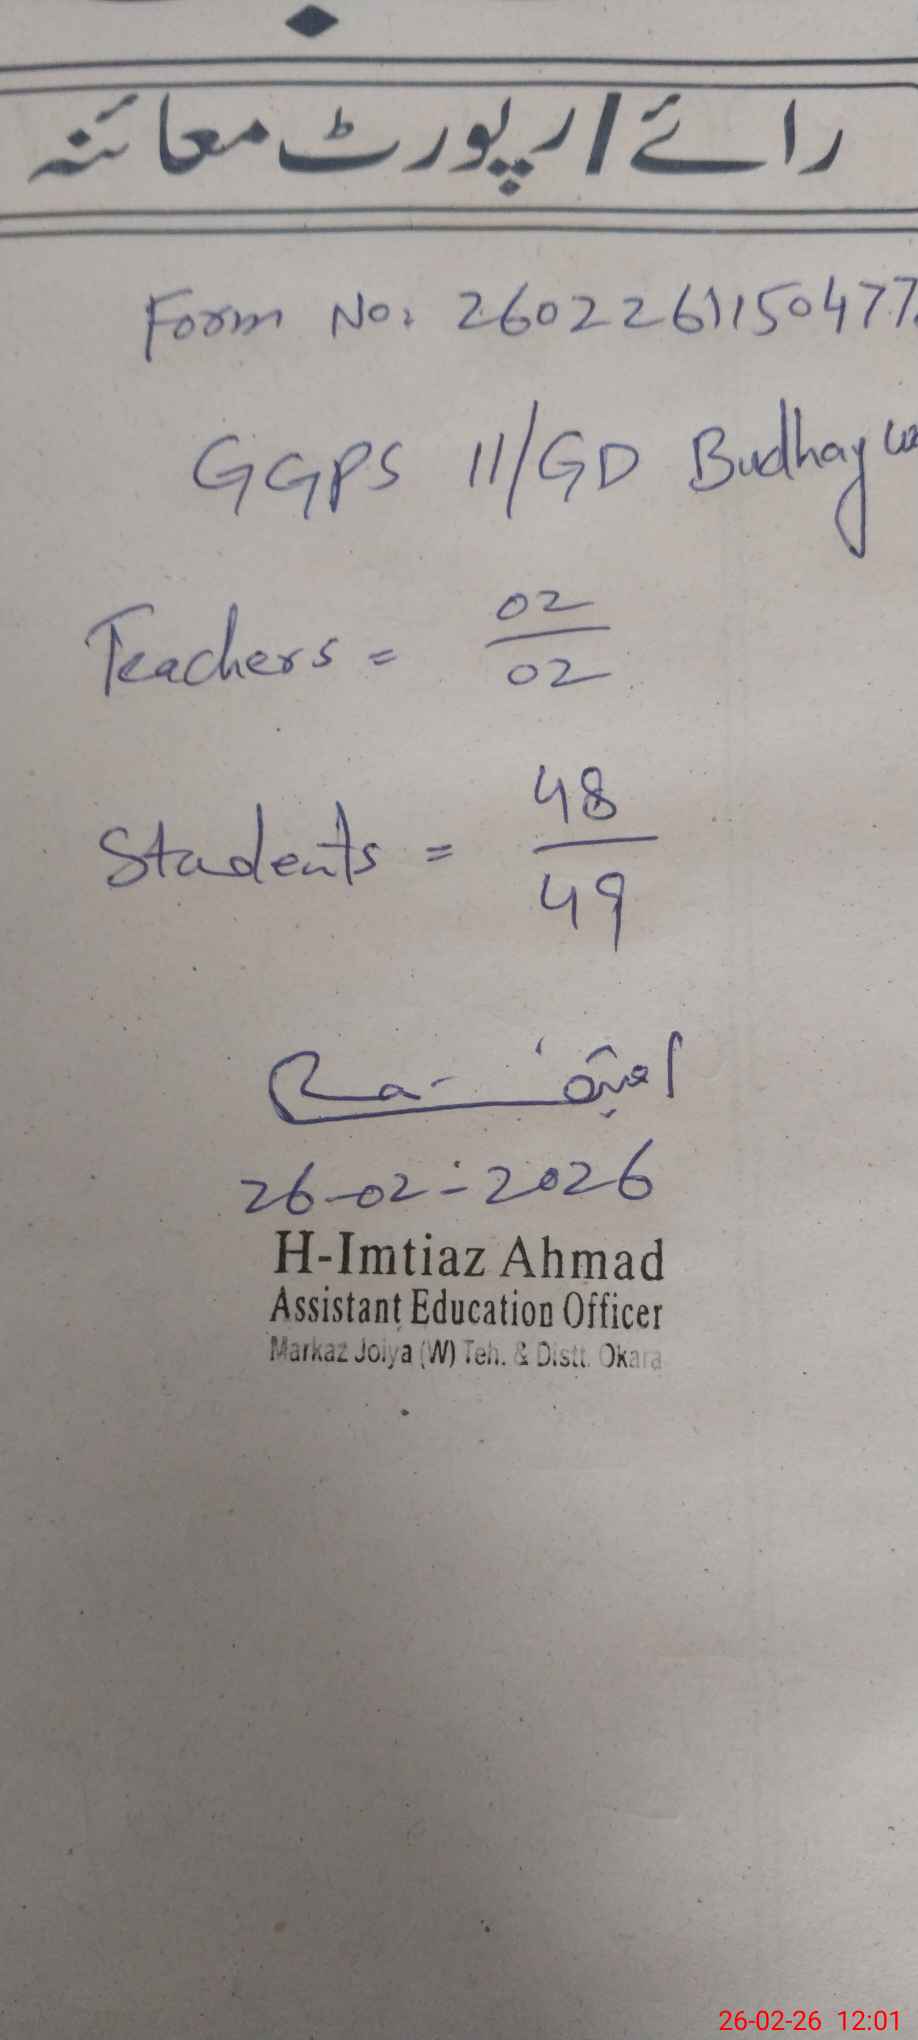 رائے / رپورٹ معائنہ
Form No: 2602261150477
GGPS 11/GD Budhay
Teachers = 02/02
Students = 48/49
26-02-2026
H-Imtiaz Ahmad
Assistant Education Officer
Markaz Joiya (W) Teh. & Distt. Okara
26-02-26 12:01